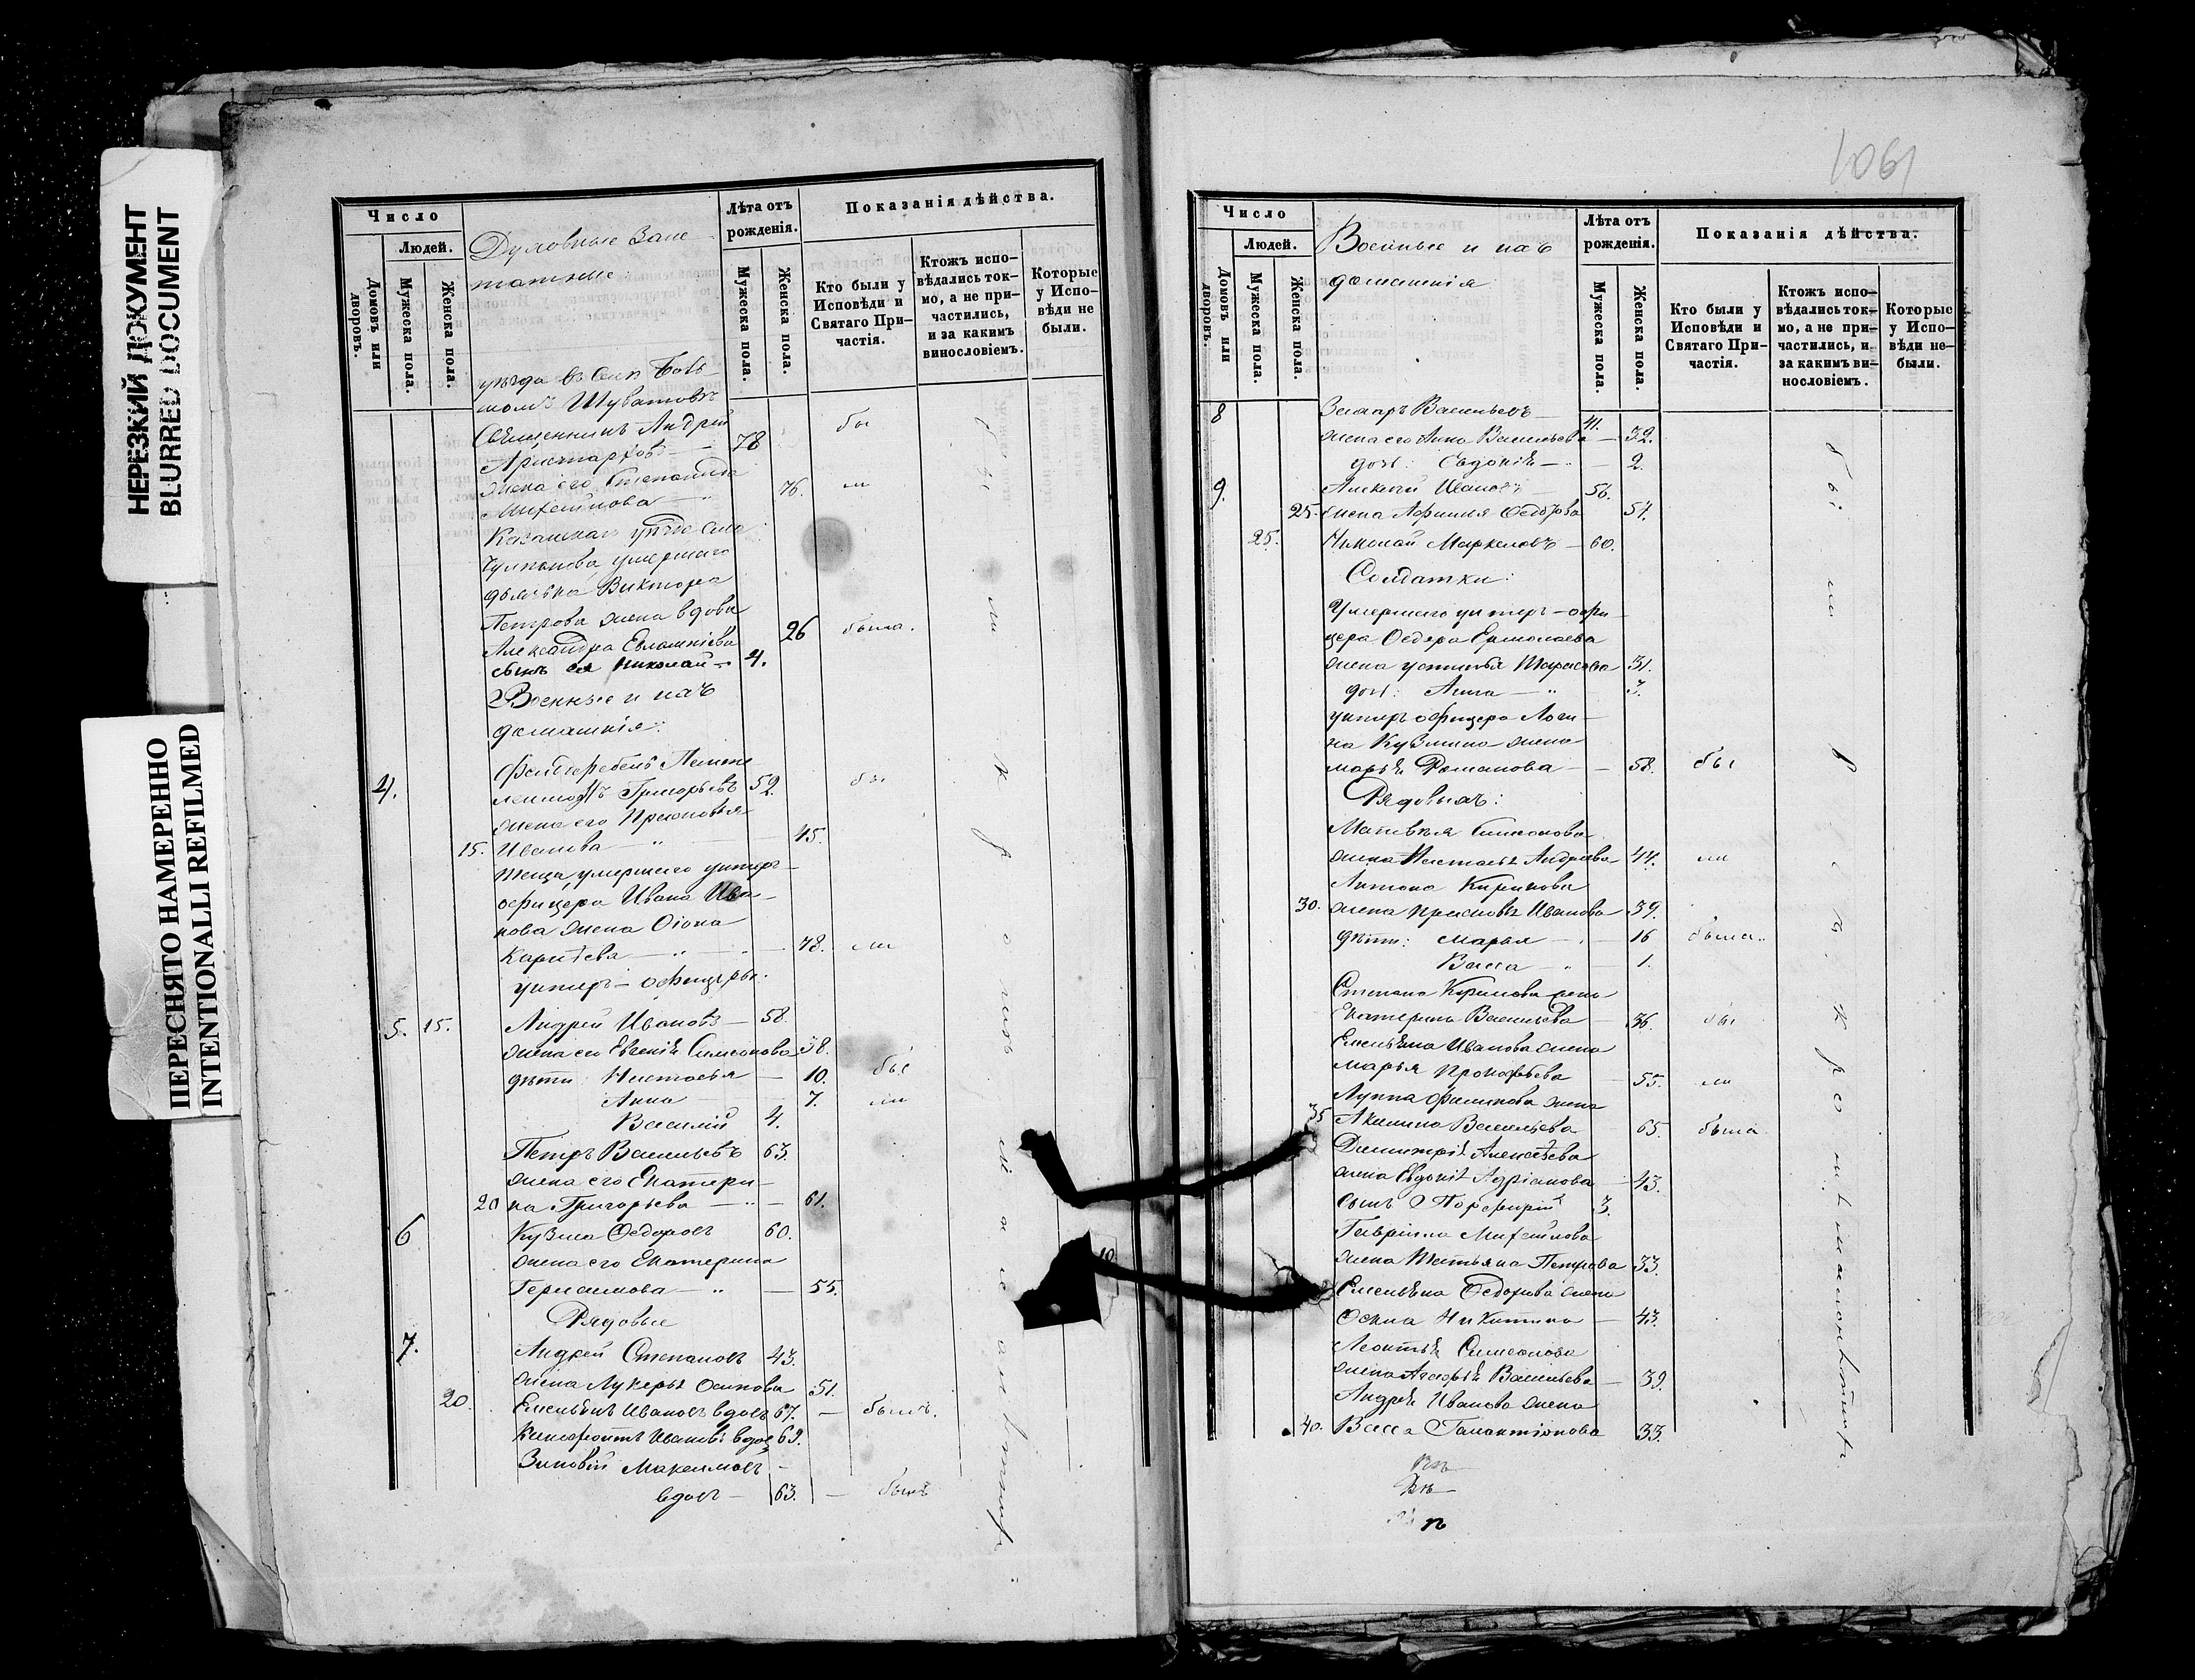 НЕРЕЗКИЙ ДОКУМЕНТ
BLURRED DOCUMENT
ПЕРЕСНЯТО НАМЕРЕННО
INTENTIONALLI REFILMED
Число
Людей.
Домовъ или дворовъ.
Мужеска пола.
Женска пола.
Духовные Заштатные:
Лѣта отъ рожденія.
Мужеска пола.
Женска пола.
Показанія дѣйства.
Кто были у Исповѣди и Святаго Причастія.
Ктожъ исповѣдались токмо, а не причастились, и за какимъ винословіемъ.
Которые у Исповѣди не были.
уѣзда въ селѣ Боль-
шомъ Шуватовѣ
Священникъ Андрей
Аристарховъ — 78 бы
жена его Степанида
Михайлова 76. ли
Казанскаго уѣзда села
умершаго
дьячка Виктора
Петрова жена вдова
Александра Евлампіева 26 была.
сынъ ея Николай — 4.
Военные и ихъ
домашнія:
Фельдфебель
4. Григорьевъ 52. бы
жена его Прасковья
15. Иванова — 45.
теща, умершаго унтеръ-
офицера Ивана Ива-
нова жена
78. ли
унтеръ-офицеры:
5. 15. Андрей Ивановъ — 58.
жена его Евгенія Симеонова 38.
дѣти: Настасья — 10. бы
Анна 7. ли
Василій 4.
Петръ Васильевъ 63.
жена его Екатери-
20 на Григорьева — 61.
6 Кузма Ѳедоровъ 60.
жена его Екатерина
Герасимова — 55.
Рядовые
7. Андрей Степановъ 43.
жена Лукерья Осипова 51.
20. Емельянъ Ивановъ вдовъ 67. — былъ.
Ксенофонтъ Ивановъ вдов. 69.
Зиновій Максимовъ
вдовъ — 63. — былъ
1061
Число
Людей.
Домовъ или дворовъ.
Мужеска пола.
Женска пола.
Военные и ихъ
домашнія
Лѣта отъ рожденія.
Мужеска пола.
Женска пола.
Показанія дѣйства.
Кто были у Исповѣди и Святаго Причастія.
Ктожъ исповѣдались токмо, а не причастились, и за какимъ винословіемъ.
Которые у Исповѣди не были.
8 Васильевъ 41.
жена его Анна Васильева — 32.
доч: Евдокія — 2.
9. Алексѣй Ивановъ 56.
25. жена Ѳедорова 54.
25. Николай Маркеловъ — 60.
Солдатки:
Умершаго унтеръ-офи-
цера Ѳедора Ермолаева
жена Устинья Тарасова 31.
доч: Анна — 3.
унтеръ офицера Логи-
на Кузмина жена
Марья Романова — 58. бы
Рядовыхъ:
Матвѣя Симеонова
жена Настасья Андреева 44. ли
Антона Кирилова
30. жена Прасковья Иванова 39.
дѣти: Марья — 16 была.
Васса — 1.
Степана Кирилова жена
Екатерина Васильева 36. бы
Емельяна Иванова жена
Марья Прокофьева 55. ли
Луппа Филипова жена
35 Акилина Васильева 65. была
Димитрія Алексѣева
жена Евдокія Адріанова 43.
сынъ Порфирій 3.
Гавріила Михайлова
жена Татьяна Петрова 33.
Емельяна Ѳедорова жена
Никитина — 43.
Леонтья Симеонова
жена Васильева — 39.
Андрея Иванова жена
40. Васса Галактіонова 33.